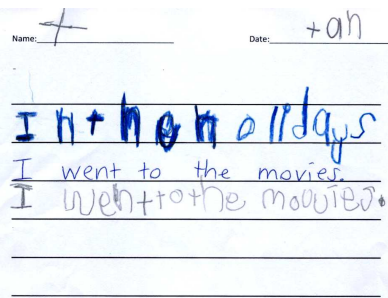 Name: t Date: tan
In the holidays
I went to the movies.
I wehttothe moouies.